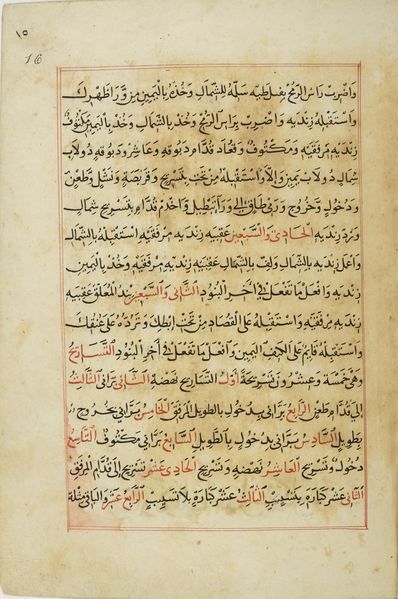 ١٥
16
واضرب راس الرمح بفلطيه سله للشمال وخذه باليمين من ورا ظهرك
واستقبله زنديه واضرب براس الرمح وخذ بالشمال وخذ باليمين مكتوف
زنديه مرفقيه ومكتوف وقعاد قدام دبوقه وعاشر ودبوقه دولاب
شمال دولاب يمين والا واستقبله من تحت بتسريح وقربصة ونشل وطعن
ودخول وخروج ورمي طاق الى ورا بتطيل واخدم قدام بتسريح شمال
وبرد زنديه الحادى والسبعين عقبيه زنديه مرفقيه استقبله بالشمال
واعمل زنديه بالشمال ولف بالشمال عقبيه زنديه مرفقيه وخذ باليمين
زنديه وافعل ما تفعل في اخر البنود الثانى والسبعين بند المعلوق عقبيه
زنديه مرفقيه واستقبله على القصاد من تحت ابطك وترده على عنقك
واستقبله قايم على الجنب اليمين وافعل ما تفعل في اخر البنود التساريح
وهي خمسة وعشرون تسريحة اول التساريح نهضة الثانى برانى الثالث
الى قدام طعن الرابع برانى بدخول بالطويل المرفق الخامس برانى بخروج
بطويل السادس برانى بدخول بالطويل السابع برانى مكتوف التاسع
دخول وتسريح العاشر نهضه وتسريح الحادى عشر تسريح الى قدام المرفق
الثانى عشر كباره بتسيب الثالث عشر كبارة بلا تسيب الرابع عشر والباقى مثله